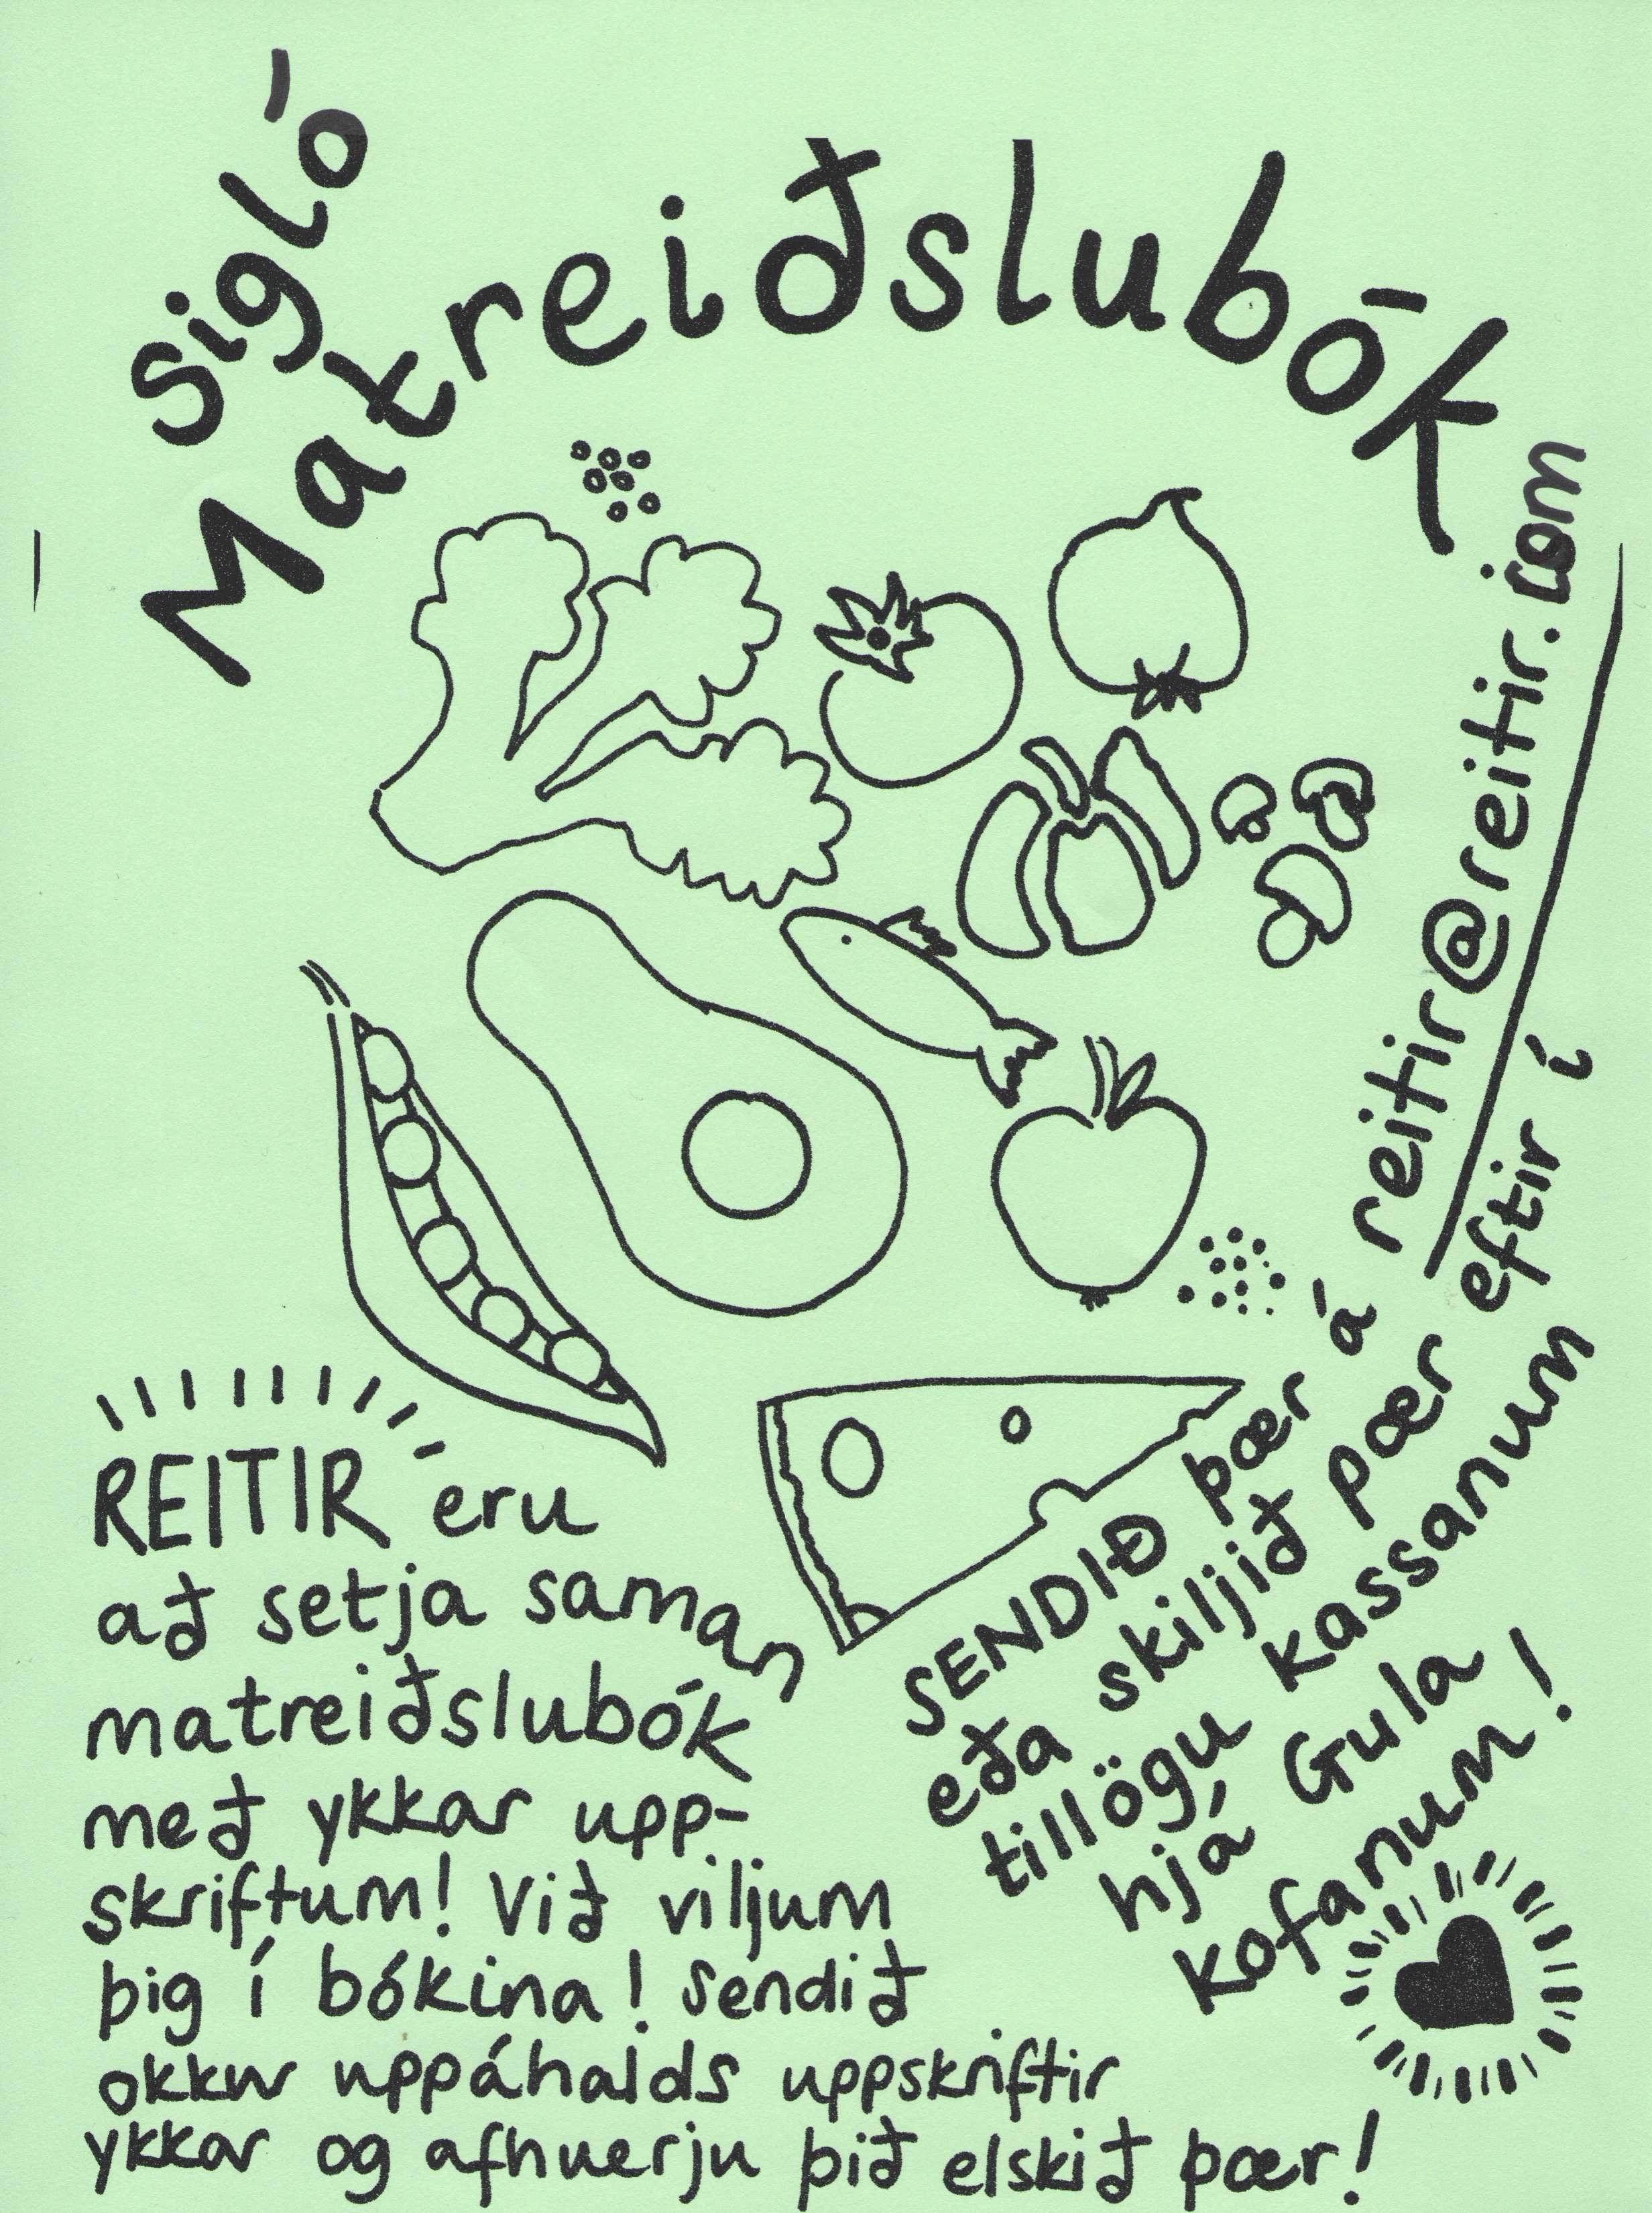 Sigló
Matreiðslubók
REITIR eru
að setja saman
matreiðslubók
með ykkar upp-
skriftum! Við viljum
þig í bókina! Sendið
okkur uppáhalds uppskriftir
ykkar og afhverju þið elskið þær!
SENDIÐ þær á reitir@reitir.com
eða skiljið þær eftir í
tillögu kassanum
hjá Gula
kofanum!